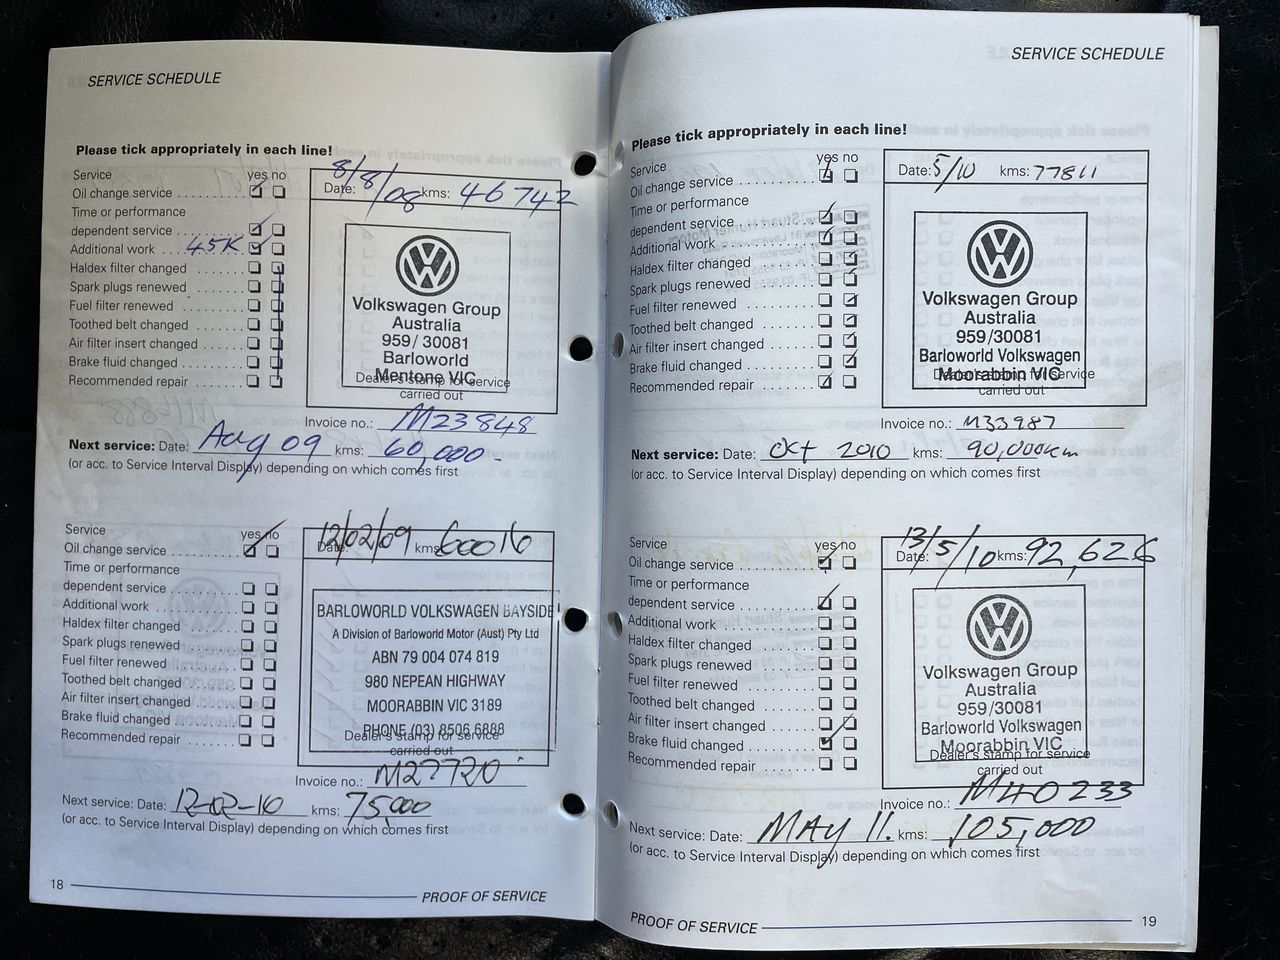 SERVICE SCHEDULE
Please tick appropriately in each line!
Service yes no
Oil change service
Time or performance
dependent service
Additional work 45K
Haldex filter changed
Spark plugs renewed
Fuel filter renewed
Toothed belt changed
Air filter insert changed
Brake fluid changed
Recommended repair
Date: 8/8/08 kms: 46742
Volkswagen Group
Australia
959/30081
Barloworld
Mentone VIC
Dealer's stamp for service
carried out
Invoice no.: M23848
Next service: Date: Aug 09 kms: 60,000
(or acc. to Service Interval Display) depending on which comes first
Service yes no
Oil change service
Time or performance
dependent service
Additional work
Haldex filter changed
Spark plugs renewed
Fuel filter renewed
Toothed belt changed
Air filter insert changed
Brake fluid changed
Recommended repair
Date: 12/02/09 kms: 60016
BARLOWORLD VOLKSWAGEN BAYSIDE
A Division of Barloworld Motor (Aust) Pty Ltd
ABN 79 004 074 819
980 NEPEAN HIGHWAY
MOORABBIN VIC 3189
PHONE (03) 8506 6888
Dealer's stamp for service
carried out
Invoice no.: M27720
Next service: Date: 12-02-10 kms: 75,000
(or acc. to Service Interval Display) depending on which comes first
18
PROOF OF SERVICE
SERVICE SCHEDULE
Please tick appropriately in each line!
Service yes no
Oil change service
Time or performance
dependent service
Additional work
Haldex filter changed
Spark plugs renewed
Fuel filter renewed
Toothed belt changed
Air filter insert changed
Brake fluid changed
Recommended repair
Date: 5/10 kms: 77811
Volkswagen Group
Australia
959/30081
Barloworld Volkswagen
Moorabbin VIC
Dealer's stamp for service
carried out
Invoice no.: M33987
Next service: Date: Oct 2010 kms: 90,000km
(or acc. to Service Interval Display) depending on which comes first
Service yes no
Oil change service
Time or performance
dependent service
Additional work
Haldex filter changed
Spark plugs renewed
Fuel filter renewed
Toothed belt changed
Air filter insert changed
Brake fluid changed
Recommended repair
Date: 13/5/10 kms: 92,626
Volkswagen Group
Australia
959/30081
Barloworld Volkswagen
Moorabbin VIC
Dealer's stamp for service
carried out
Invoice no.: M40233
Next service: Date: MAY 11. kms: 105,000
(or acc. to Service Interval Display) depending on which comes first
PROOF OF SERVICE
19